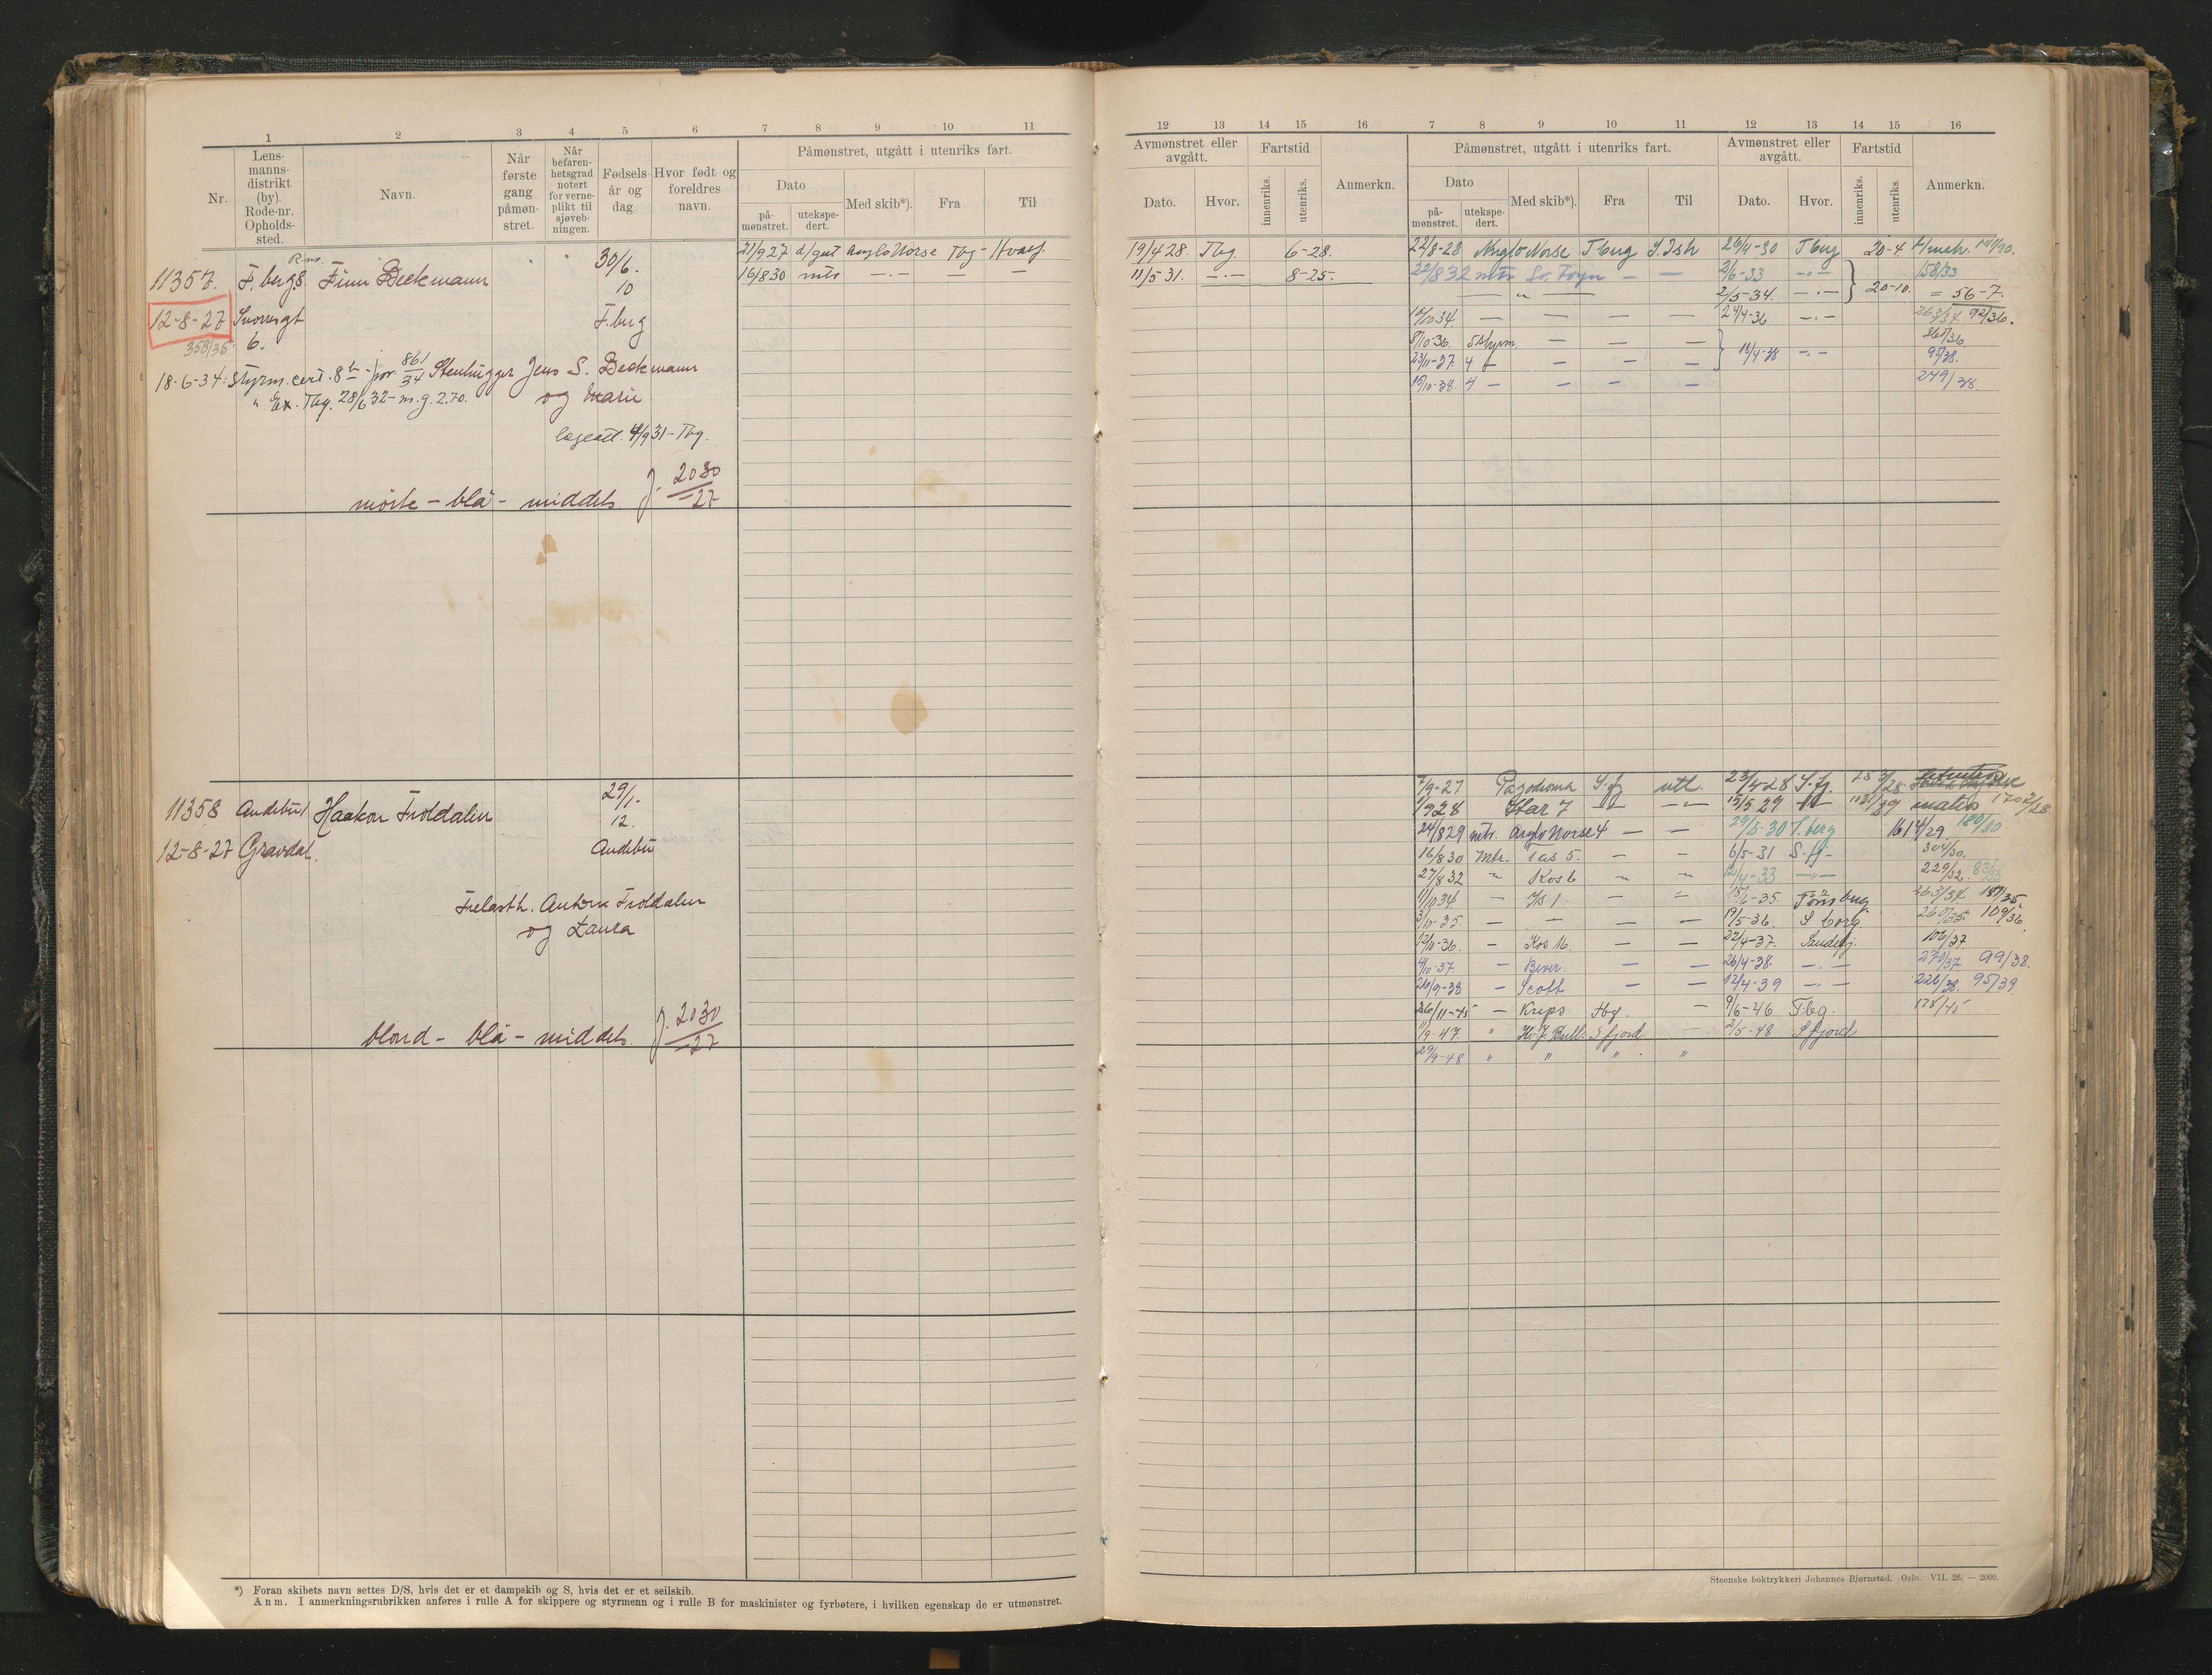 1 2 3 4 5 6 7 8 9 10 11
Nr.
Lens-
manns-
distrikt
(by).
Rode-nr.
Opholds-
sted.
Navn.
Når
første
gang
påmøn-
stret.
Når
befaren-
hetsgrad
notert
for verne-
plikt til
sjøveb-
ningen.
Fødsels-
år og
dag.
Hvor født og
foreldres
navn.
Påmønstret, utgått i utenriks fart.
Dato
på-
mønstret.
utekspe-
dert.
Med skib*).
Fra
Til
11357. F.berg. Finn Beckmann 30/6. 10
12-8-27 Snorresgt F.berg
358/35 6.
18-6-34: Styrm. cert. 861/34 Stenhugger Jens S. Beckmann
" Ex. Tbg. 28/6 32 - m.g. 2.70. og Marie
4/9 31 - Tbg.
mörk - blå - middels J. 2030/27
21/9 27 d/gut Anglo Norse Tbg - Hvalf.
16/8 30 mtr — — —
11358 Andebu Haakon Troldalen 29/1. 12.
12-8-27 Gravdal. Andebu
Anton Troldalen
og Laura
blond - blå - middels J. 2030/27
*) Foran skibets navn settes D/S, hvis det er et dampskib og S, hvis det er et seilskib.
Anm. I anmerkningsrubrikken anføres i rulle A for skippere og styrmenn og i rulle B for maskinister og fyrbøtere, i hvilken egenskap de er utmønstret.
12 13 14 15 16 7 8 9 10 11 12 13 14 15 16
Avmønstret eller
avgått.
Dato.
Hvor.
Fartstid
innenriks.
utenriks.
Anmerkn.
Påmønstret, utgått i utenriks fart.
Dato
på-
mønstret.
utekspe-
dert.
Med skib*).
Fra
Til
Avmønstret eller
avgått.
Dato.
Hvor.
Fartstid
innenriks.
utenriks.
Anmerkn.
19/4 28. Tbg. 6-28. 22/8-28 Anglo Norse Tbug S Ish 26/4-30 Tbug 20-4
11/5 31. —·— 8-25. 22/8 32 mtr Sv. Foyn — — 2/6-33 —·— 158/33
— " — 2/5-34. —·— 20-10. = 56-7.
10/10 34. — — — — 24/4-36 —·— 92/36.
8/10-36. Styrm. — — —
23/11-37. 4 — — — — 18/4-38 —·— 95/38.
15/10-38. 4 — — — — 249/38
7/9-27 Pagodroma S.fj utl. 23/4-28 S.fj.
Star 7 — — 15/5 29 matr.
24/8 29 mtr. Anglo Norse 4 — — 29/5-30 T.berg 180/30
16/8 30 Mtr. Tas 5. — — 6/5-31 S.fj- 304/30.
27/8 32 " Kos 6 ~ ~ 12/4-33 —"— 229/32. 83/33
1/10 34 — — — 18/6-35. Tönsberg 263/34 187/35.
3/10-35. — — — — 19/5-36. S borg. 109/36
12/11-36. — Kos 16. — — 22/4-37. Sandefj. 106/37
4/10-37. — Bever. — — 26/4-38. —·— 270/37 99/38.
26/9-38 — Scott — — 12/4-39 —·— 226/38. 95/39
26/11-45 — Kreps tbg. — 9/6-46 Tbg. 178/45
11/9-47. " H. J. Bull. Sfjord — 2/5-48 Sfjord
29/9-48 " " " "
Steenske boktrykkeri Johannes Bjørnstad. Oslo. VII. 26. — 2000.